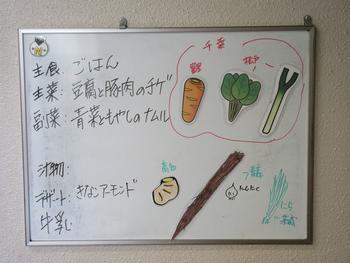 千葉
主食: ごはん
主菜: 豆腐と豚肉のチゲ
副菜: 青菜ともやしのナムル
汁物:
デザート: きなこアーモンド
牛乳:
高知
にんにく
にら
茨城